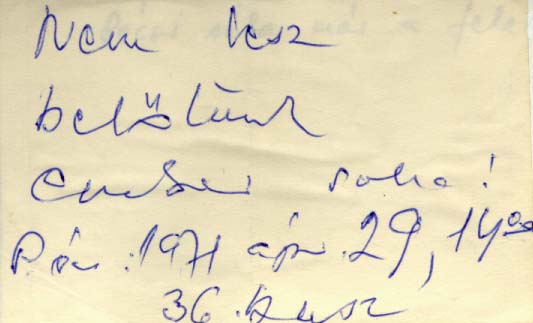 Nem lesz
belőlünk
ember soha!
1971 ápr. 29, 14⁰⁰
36. busz